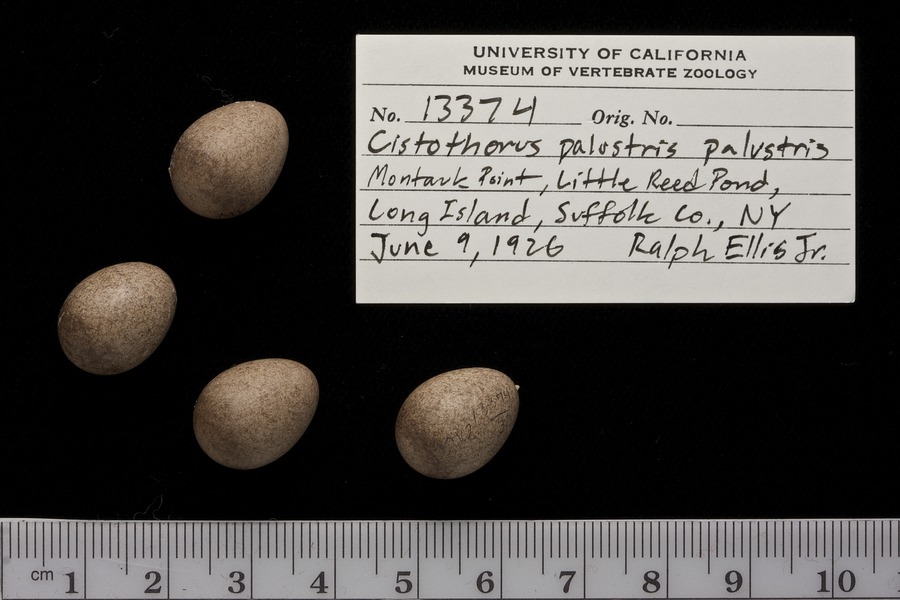 UNIVERSITY OF CALIFORNIA
MUSEUM OF VERTEBRATE ZOOLOGY
No. 13374 Orig. No.
Cistothorus palustris palustris
Montauk Point, Little Reed Pond,
Long Island, Suffolk Co., NY
June 9, 1926 Ralph Ellis Jr.
13374
cm 1 2 3 4 5 6 7 8 9 10